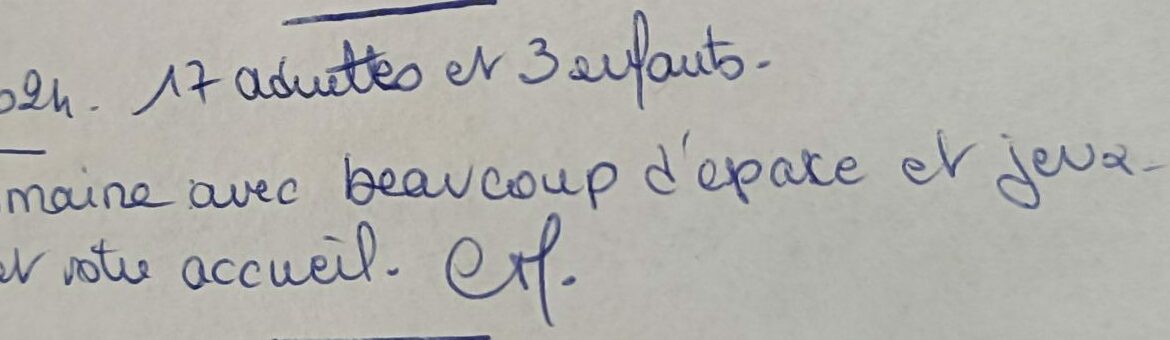 024. 17 adultes et 3 enfants.
maine avec beaucoup d'epace et jeux.
et votre accueil.